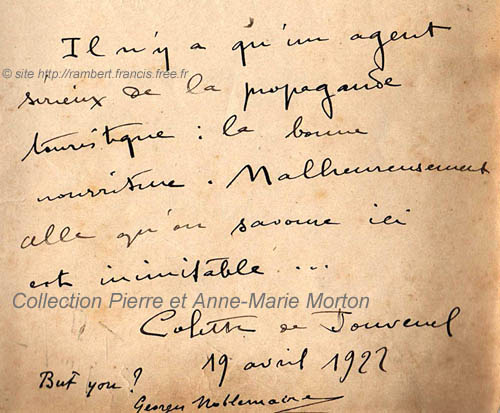 Il n'y a qu'un agent
© site http://rambert.francis.free.fr
sérieux de la propagande
touristique : la bonne
nourriture. Malheureusement
celle qu'on savoure ici
est inimitable ...
Collection Pierre et Anne-Marie Morton
Colette de Jouvenel
19 avril 1922
But you?
Georges Noblemaire